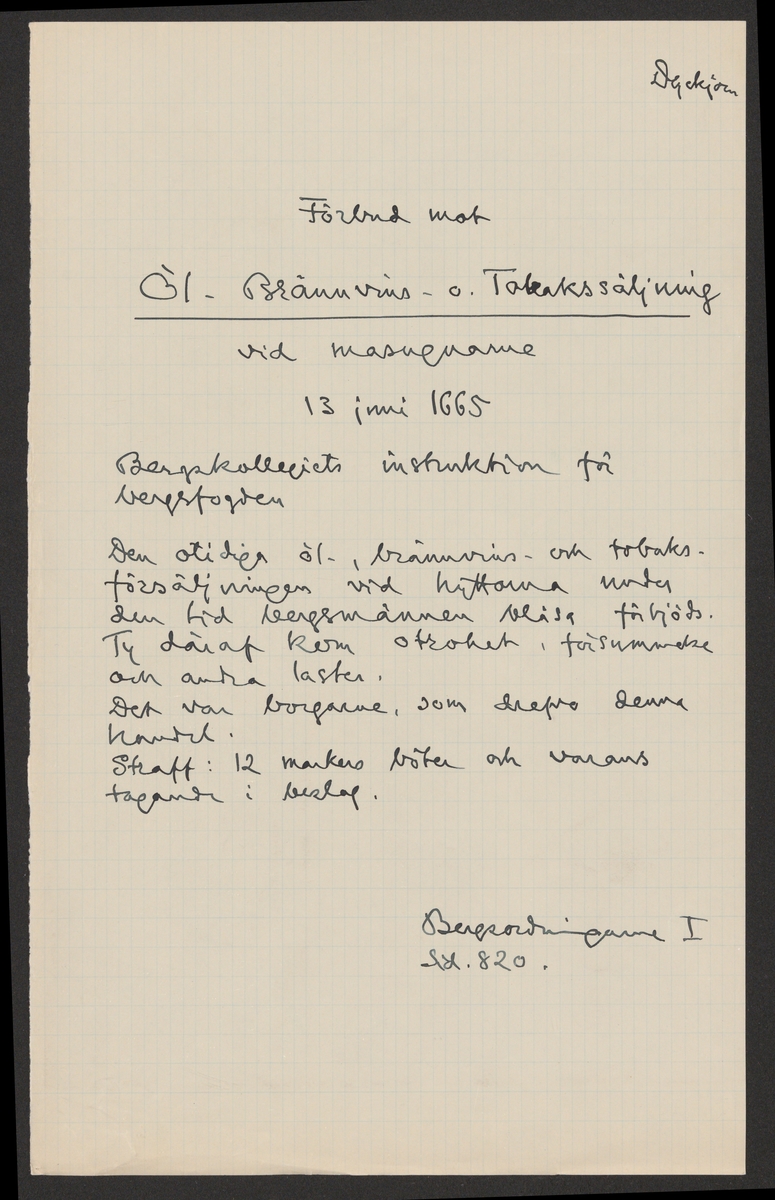 Dyckjom
Förbud mot
Öl- Brännvins- o. Tobakssäljning
vid masugnarne
13 juni 1665
Bergskollegiets instruktion för
bergsfogden
Den otidiga öl-, brännvins- och tobaks-
försäljningen vid hyttorna under
den tid bergsmännen blåsa förbjöds.
Ty däraf kom otrohet, försummelse
och andra laster.
Det var borgarne, som drefvo denna
handel.
Straff: 12 markers böter och varans
tagande i beslag.
Bergsordningarne I
Sid. 820.